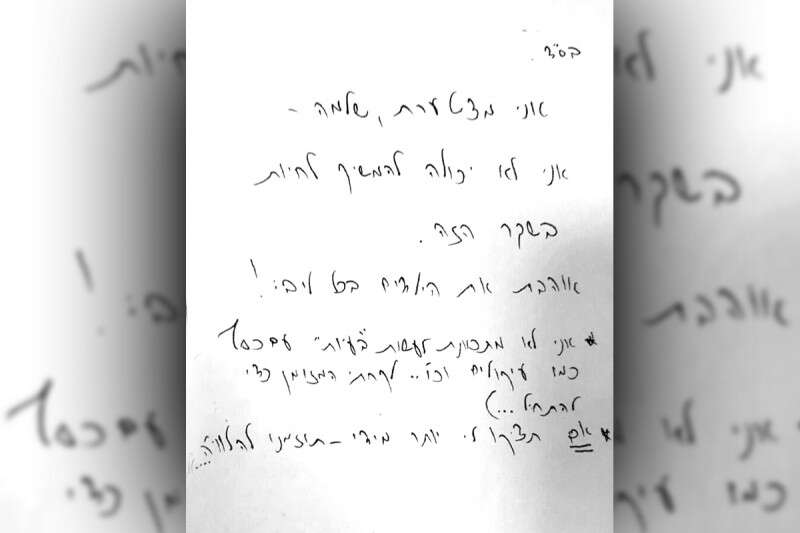 בס"ד
אני מצטערת, שלמה -
אני לא יכולה להמשיך לחיות
בשקר הזה.
אוהבת את הילדים בכל ליבי!
* אני לא מתכוונת לעשות "בעיות" עם כסף
כמו עיקולים וכו'.. לקחתי המזומן כדי
להתחיל...)
* אם תצקו לי יותר מידי - תוזמנו להלוויה....